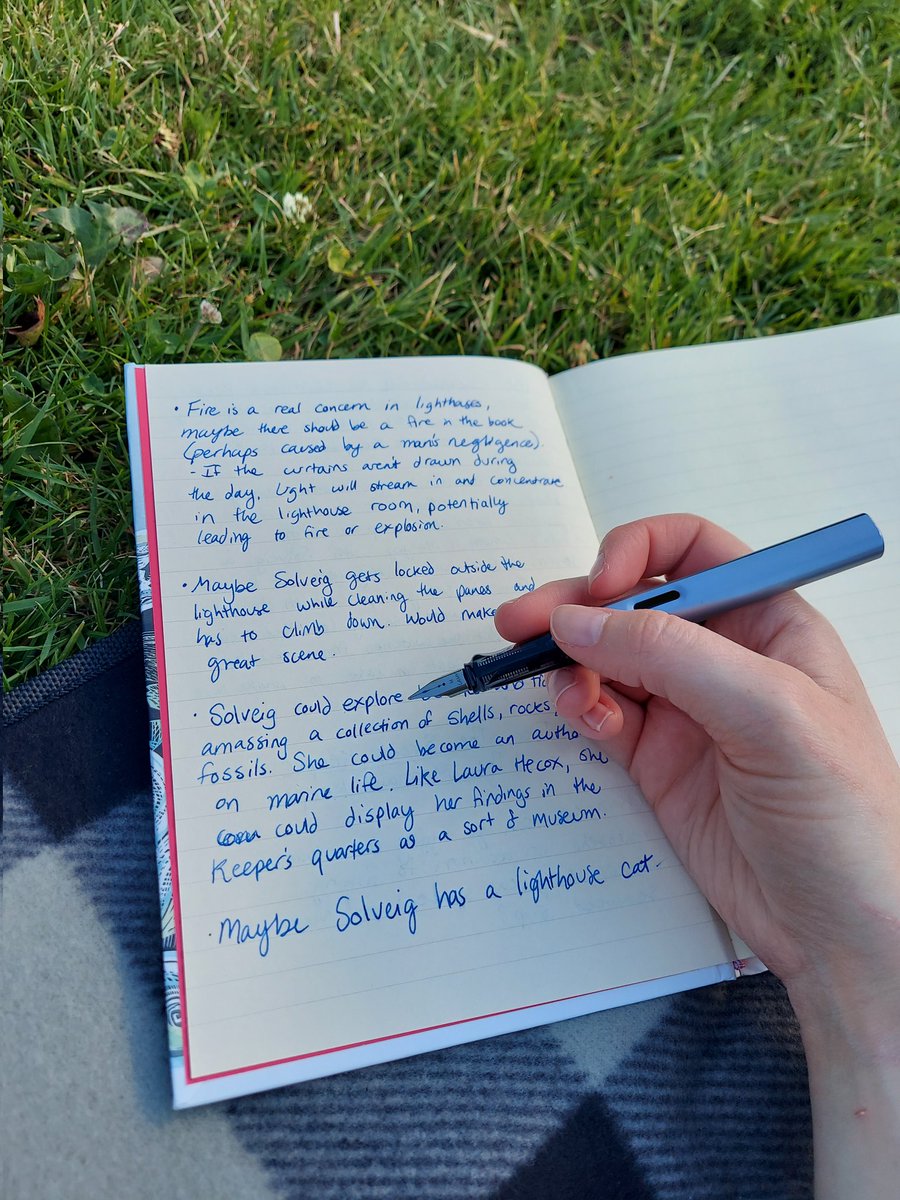 • Fire is a real concern in lighthouses,
maybe there should be a fire in the book
(perhaps caused by a man's negligence).
- If the curtains aren't drawn during
the day, light will stream in and concentrate
in the lighthouse room, potentially
leading to fire or explosion.
• Maybe Solveig gets locked outside the
lighthouse while cleaning the panes and
has to climb down. Would make
great scene.
• Solveig could explore
amassing a collection of shells, rocks,
fossils. She could become an
on marine life. Like Laura Hecox, she
could display her findings in the
Keeper's quarters as a sort of museum.
• Maybe Solveig has a lighthouse cat.